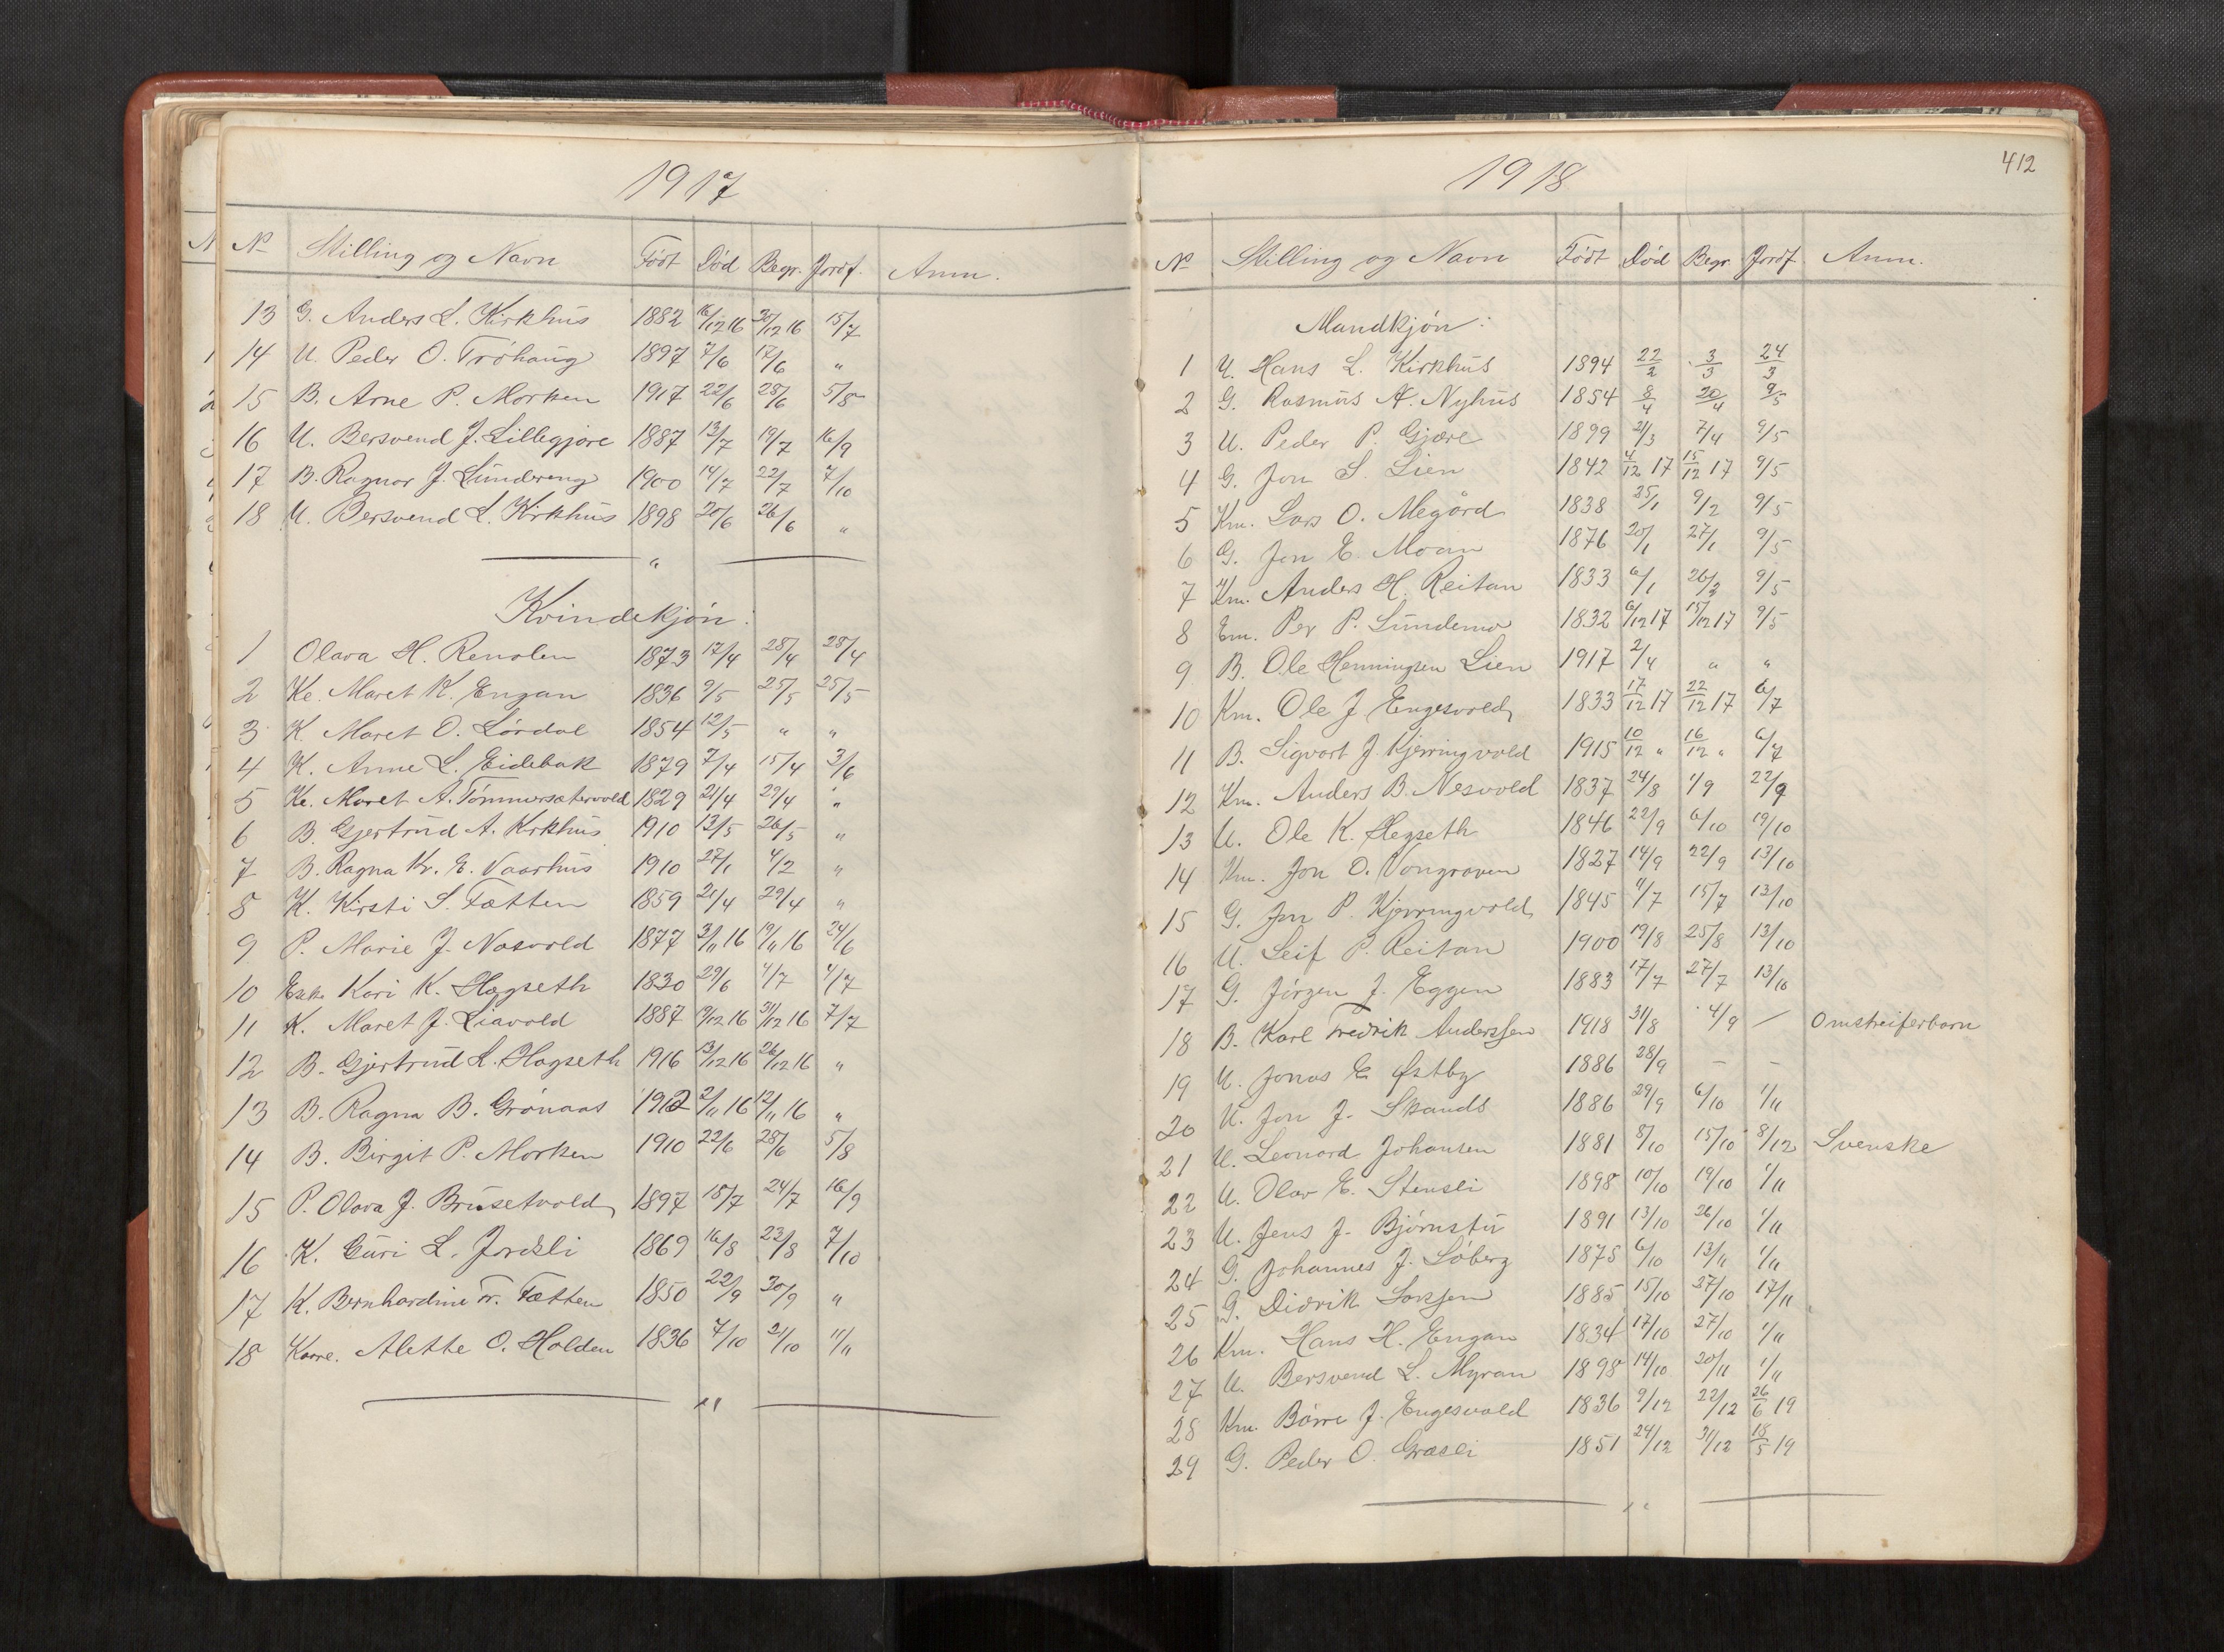 1917
No Stilling og Navn Født Død Begr. Jordf. Anm.
13 G. Anders L. Kirkhus 1882 16/12 16 30/12 16 15/7
14 U. Peder O. Trøhaug 1897 7/6 17/6 "
15 B. Arne P. Morken 1917 22/6 28/6 5/8
16 U. Bersvend J. Lillegjøre 1887 13/7 19/7 16/9
17 B. Ragnar J. Lundreng 1900 14/7 22/7 7/10
18 U. Bersvend L. Kirkhus 1898 20/6 26/6 "
"
Kvindekjøn:
1 Olava H. Renolen 1873 17/4 28/4 28/4
2 Ke. Maret K. Engan 1836 9/5 25/5 25/5
3 K. Maret O. Lørdal 1854 12/5 " "
4 K. Anne L. Eidebak 1879 7/4 15/4 3/6
5 Ke. Maret A. Tømmersætervold 1829 21/4 29/4 "
6 B. Gjertrud A. Kirkhus 1910 13/5 26/5 "
7 B. Ragna Kr. E. Vaarhus 1910 27/1 4/2 "
8 K. Kirsti S. Tætten 1859 21/4 29/4 "
9 P. Marie J. Nasvold 1877 3/11 16 19/11 16 24/6
10 Kari K. Hægseth 1830 29/6 4/7 4/7
11 K. Maret J. Liavold 1887 19/12 16 31/12 16 7/7
12 B. Gjertrud L. Hagseth 1916 13/12 16 26/12 16 "
13 B. Ragna B. Grønaas 1912 2/11 16 12/11 16 "
14 B. Birgit P. Morken 1910 22/6 28/6 5/8
15 P. Olava J. Brusetvold 1897 18/7 24/7 16/9
16 K. Guri L. Jordsli 1869 16/8 23/8 7/10
17 K. Bernhardine Tr. Tætten 1850 22/9 30/9 "
18 Alette O. Holden 1836 7/10 21/10 11/11
"
412
1918
No Stilling og Navn Født Død Begr. Jordf. Anm.
Mandkjøn:
1 U. Hans L. Kirkhus 1894 22/2 3/3 24/3
2 G. Rasmus A. Nyhus 1854 8/4 20/4 9/5
3 U. Peder P. Gjære 1899 21/3 7/4 9/5
4 G. Jon S. Lien 1842 4/12 17 15/12 17 9/5
5 Km. Lars O. Megård 1838 25/1 9/2 9/5
6 G. Jon E. Moan 1876 20/1 27/1 9/5
7 Km. Anders H. Reitan 1833 6/1 26/2 9/5
8 Em. Per P. Lundemo 1832 6/12 17 15/12 17 9/5
9 B. Ole Henningsen Lien 1917 2/4 " "
10 Km. Ole J Engesvold 1833 17/12 17 22/12 17 6/7
11 B. Sigvart J Kjerringvold 1915 10/12 " 16/12 " 6/7
12 Km. Anders B. Nesvold 1837 24/8 1/9 22/9
13 U. Ole K. Hegseth 1846 22/9 6/10 19/10
14 Km. Jon O. Vongraven 1827 14/9 22/9 13/10
15 G. Jon P. Kjerringvold 1845 11/7 15/7 13/10
16 U. Leif P. Reitan 1900 19/8 25/8 13/10
17 G. Jørgen J. Eggen 1883 17/7 27/7 13/10
18 B. Karl Fredrik Anderssen 1918 31/8 4/9 — Omstreiferbarn
19 U. Jonas E Østby 1886 28/9 — —
20 U. Jon J. Skands 1886 29/9 6/10 1/11
21 U. Leonard Johansen 1881 8/10 15/10 8/12 Svenske
22 U. Olav E. Stensli 1898 10/10 19/10 1/11
23 U. Jens J. Bjørnstu 1891 13/10 26/10 1/11
24 G. Johannes J. Løberg 1875 6/10 13/11 1/11
25 G. Didrik Larssen 1885 15/10 27/10 17/11
26 Km. Hans H. Engan 1834 17/10 27/10 1/11
27 U. Bersvend L. Myran 1898 14/10 20/11 1/11
28 Km. Børre J. Engesvold 1836 9/12 22/12 26/6 19
29 G. Peder O. Græsli 1851 24/12 31/12 18/5 19
"